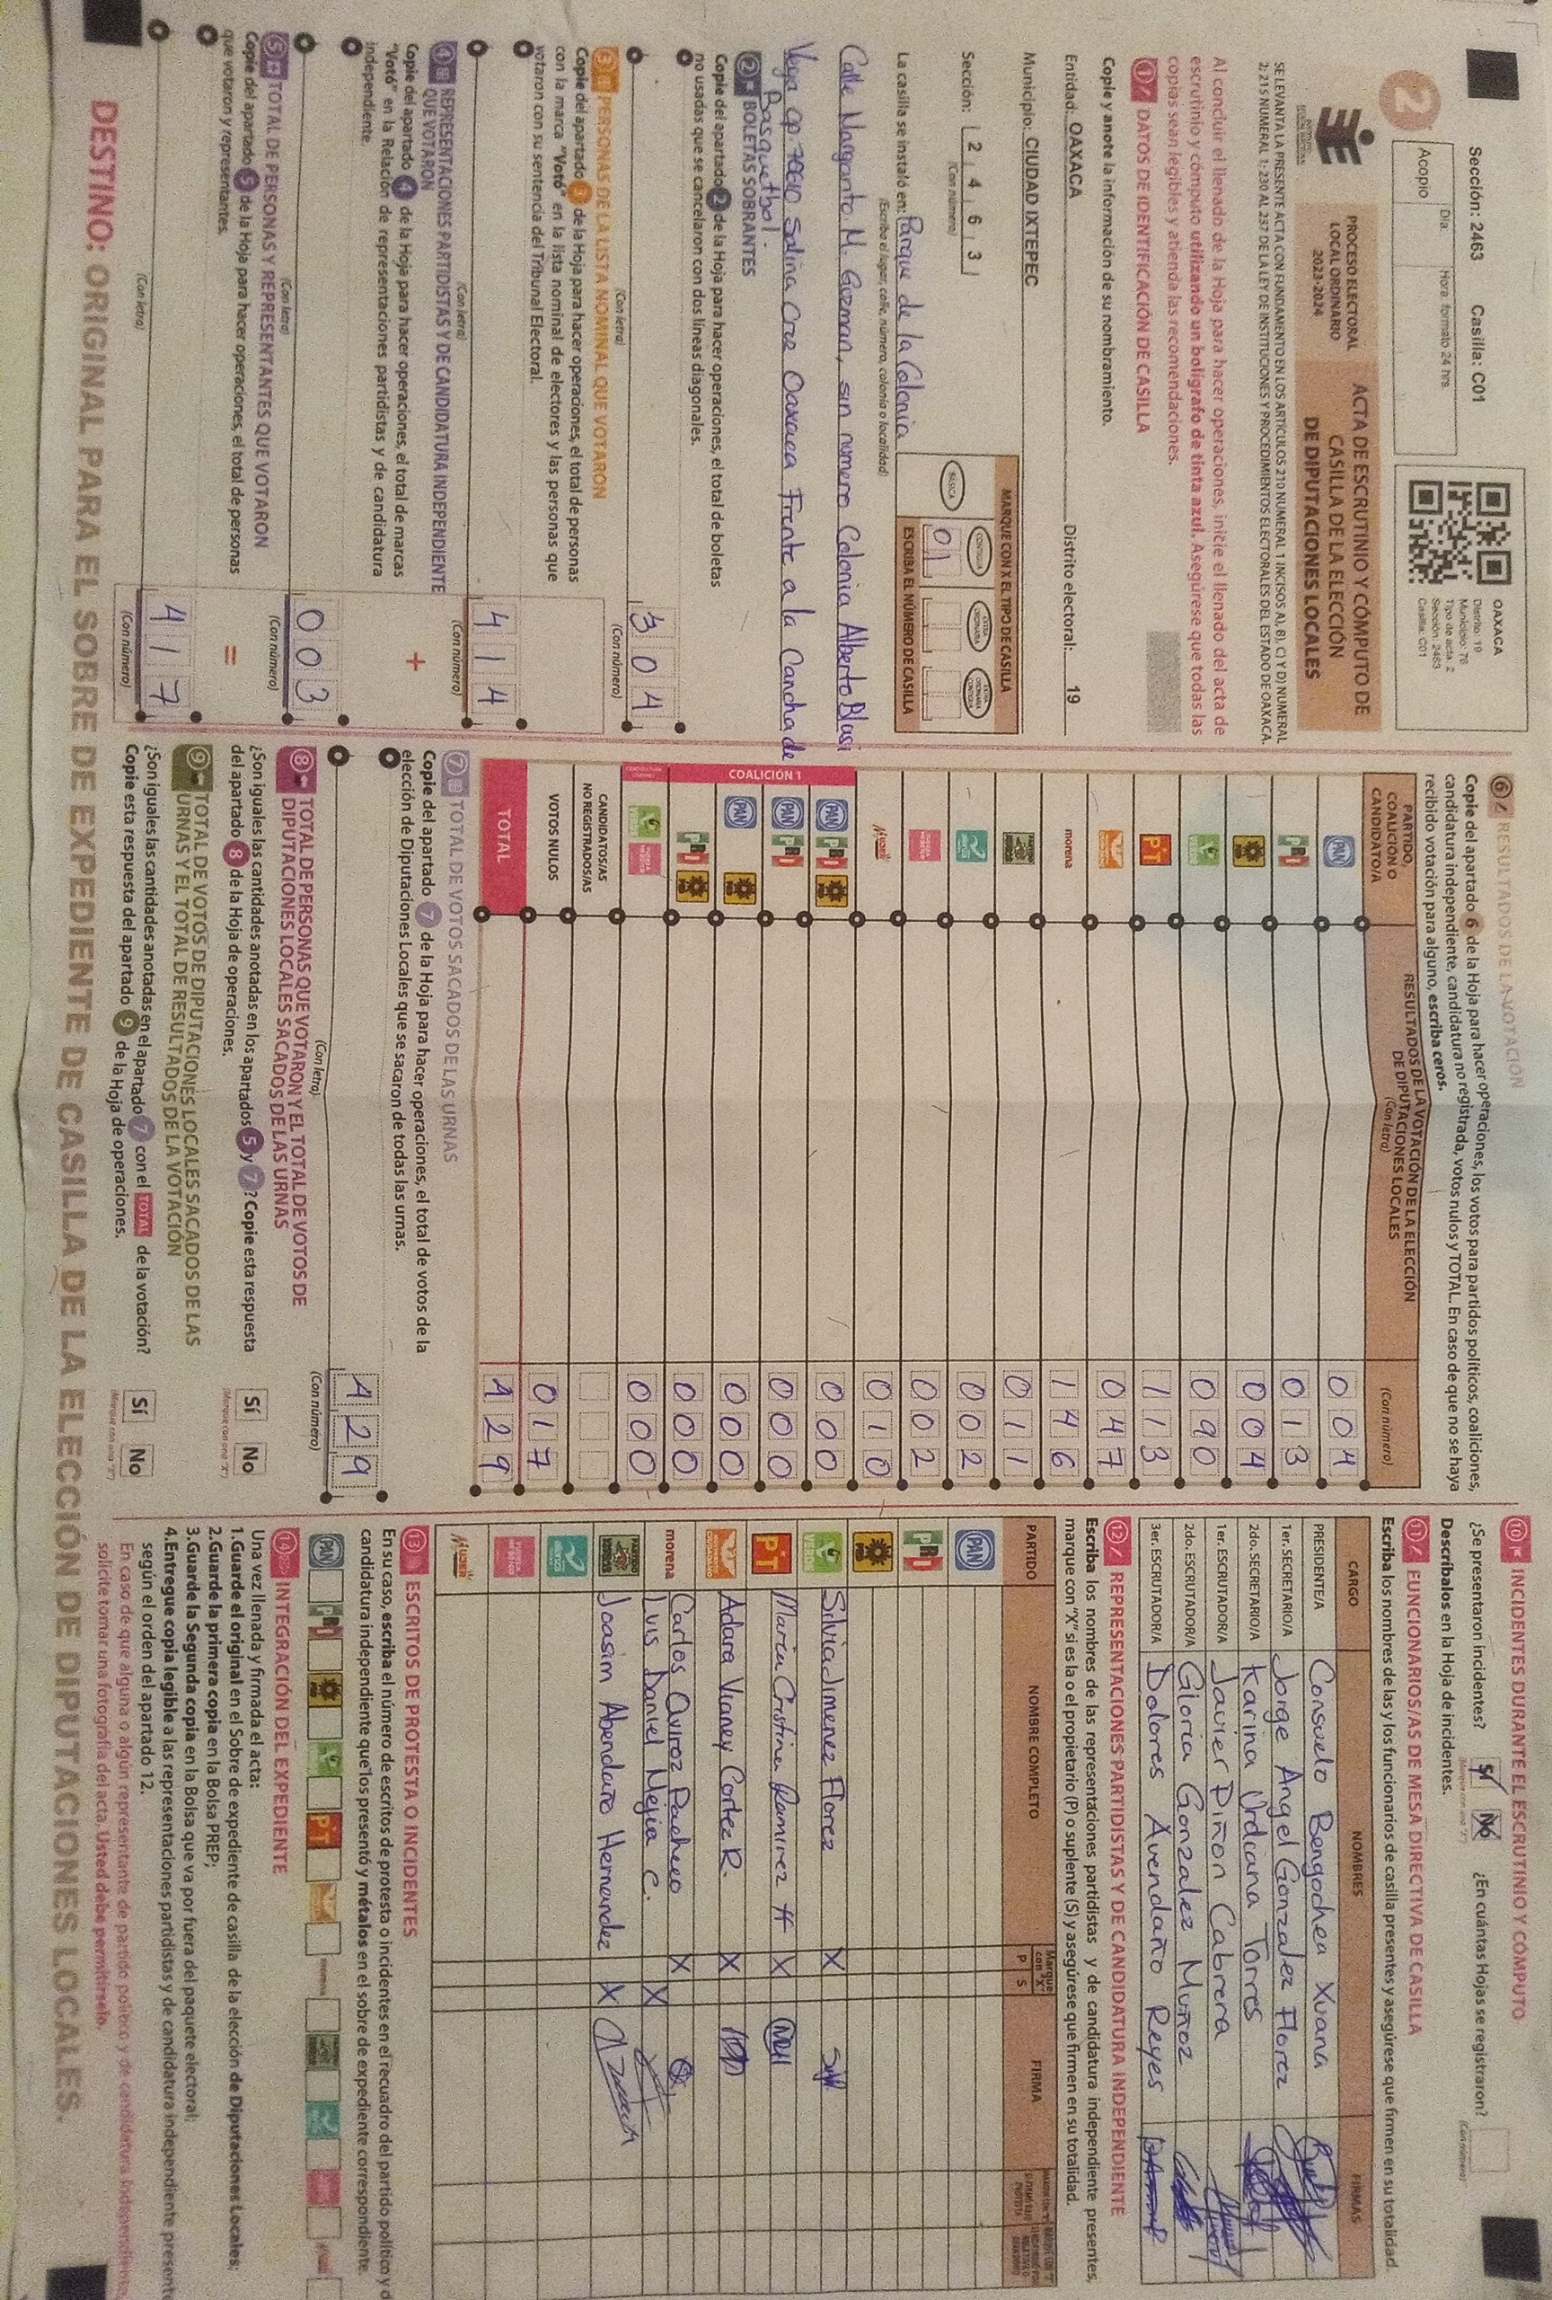 Sección: 2463 Casilla: C01
Día: Hora: formato 24 hrs.
Acopio
2
OAXACA
Distrito: 19
Municipio: 76
Tipo de acta: 2
Sección: 2463
Casilla: C01
PROCESO ELECTORAL
LOCAL ORDINARIO
2023-2024
ACTA DE ESCRUTINIO Y CÓMPUTO DE
CASILLA DE LA ELECCIÓN
DE DIPUTACIONES LOCALES
SE LEVANTA LA PRESENTE ACTA CON FUNDAMENTO EN LOS ARTÍCULOS 210 NUMERAL 1 INCISOS A), B), C) Y D) NUMERAL
2; 215 NUMERAL 1; 230 AL 237 DE LA LEY DE INSTITUCIONES Y PROCEDIMIENTOS ELECTORALES DEL ESTADO DE OAXACA.
Al concluir el llenado de la Hoja para hacer operaciones, inicie el llenado del acta de
escrutinio y cómputo utilizando un bolígrafo de tinta azul. Asegúrese que todas las
copias sean legibles y atienda las recomendaciones.
1 DATOS DE IDENTIFICACIÓN DE CASILLA
Copie y anote la información de su nombramiento.
Entidad: OAXACA Distrito electoral: 19
Municipio: CIUDAD IXTEPEC
Sección: 2 4 6 3
(Con número)
MARQUE CON X EL TIPO DE CASILLA
BÁSICA CONTIGUA EXTRAORDINARIA EXTRAORDINARIA CONTIGUA
01
ESCRIBA EL NÚMERO DE CASILLA
La casilla se instaló en: Parque de la Colonia
(Escriba el lugar, calle, número, colonia o localidad)
Calle Margarito M. Guzman, sin numero Colonia Alberto Blasi
Vega cp. 70610 Salina Cruz Oaxaca Frente a la Cancha de
Basquetbol.
2 BOLETAS SOBRANTES
Copie del apartado 2 de la Hoja para hacer operaciones, el total de boletas
no usadas que se cancelaron con dos líneas diagonales.
304
(Con letra) (Con número)
3 PERSONAS DE LA LISTA NOMINAL QUE VOTARON
Copie del apartado 3 de la Hoja para hacer operaciones, el total de personas
con la marca "Votó" en la lista nominal de electores y las personas que
votaron con su sentencia del Tribunal Electoral.
414
(Con letra) (Con número)
4 REPRESENTACIONES PARTIDISTAS Y DE CANDIDATURA INDEPENDIENTE
QUE VOTARON
Copie del apartado 4 de la Hoja para hacer operaciones, el total de marcas
"Votó" en la Relación de representaciones partidistas y de candidatura
independiente.
+
003
(Con letra) (Con número)
5 TOTAL DE PERSONAS Y REPRESENTANTES QUE VOTARON
Copie del apartado 5 de la Hoja para hacer operaciones, el total de personas
que votaron y representantes.
=
417
(Con letra) (Con número)
6 RESULTADOS DE LA VOTACIÓN
Copie del apartado 6 de la Hoja para hacer operaciones, los votos para partidos políticos, coaliciones,
candidatura independiente, candidatura no registrada, votos nulos y TOTAL. En caso de que no se haya
recibido votación para alguno, escriba ceros.
PARTIDO,
COALICIÓN O
CANDIDATO/A
RESULTADOS DE LA VOTACIÓN DE LA ELECCIÓN
DE DIPUTACIONES LOCALES
(Con letra) (Con número)
PAN 004
PRI 013
PRD 004
VERDE 090
PT 113
047
morena 146
011
002
002
MUJER 010
COALICIÓN 1
PAN PRI PRD 000
PAN PRI 000
PAN PRD 000
PRI PRD 000
VERDE 000
CANDIDATOS/AS
NO REGISTRADOS/AS
VOTOS NULOS 017
TOTAL 429
7 TOTAL DE VOTOS SACADOS DE LAS URNAS
Copie del apartado 7 de la Hoja para hacer operaciones, el total de votos de la
elección de Diputaciones Locales que se sacaron de todas las urnas.
429
(Con letra) (Con número)
8 TOTAL DE PERSONAS QUE VOTARON Y EL TOTAL DE VOTOS DE
DIPUTACIONES LOCALES SACADOS DE LAS URNAS
¿Son iguales las cantidades anotadas en los apartados 5 y 7? Copie esta respuesta
del apartado 8 de la Hoja de operaciones.
Sí No
(Marque con una "X")
9 TOTAL DE VOTOS DE DIPUTACIONES LOCALES SACADOS DE LAS
URNAS Y EL TOTAL DE RESULTADOS DE LA VOTACIÓN
¿Son iguales las cantidades anotadas en el apartado 7 con el TOTAL de la votación?
Copie esta respuesta del apartado 9 de la Hoja de operaciones.
Sí No
(Marque con una "X")
10 INCIDENTES DURANTE EL ESCRUTINIO Y CÓMPUTO
¿Se presentaron incidentes? Sí No ¿En cuántas Hojas se registraron?
(Marque con una "X") (Con número)
Descríbalos en la Hoja de incidentes.
11 FUNCIONARIOS/AS DE MESA DIRECTIVA DE CASILLA
Escriba los nombres de las y los funcionarios de casilla presentes y asegúrese que firmen en su totalidad.
CARGO NOMBRES FIRMAS
PRESIDENTE/A Consuelo Bengochea Xuana
1er. SECRETARIO/A Jorge Angel Gonzalez Florez
2do. SECRETARIO/A Karina Urdiana Torres
1er. ESCRUTADOR/A Javier Piñon Cabrera
2do. ESCRUTADOR/A Gloria Gonzalez Muñoz
3er. ESCRUTADOR/A Dolores Avendaño Reyes
12 REPRESENTACIONES PARTIDISTAS Y DE CANDIDATURA INDEPENDIENTE
Escriba los nombres de las representaciones partidistas y de candidatura independiente presentes,
marque con "X" si es la o el propietario (P) o suplente (S) y asegúrese que firmen en su totalidad.
PARTIDO NOMBRE COMPLETO Marque con "X" P S FIRMA
PAN
PRI
PRD
VERDE Silvia Jimenez Florez X
PT Maria Cristina Ramirez H X
Adara Vianey Cortez R. X
morena Carlos Quiroz Pacheco X
Luis Daniel Mejia C. X
Joasim Abendaño Hernandez X
MUJER
13 ESCRITOS DE PROTESTA O INCIDENTES
En su caso, escriba el número de escritos de protesta o incidentes en el recuadro del partido político y
candidatura independiente que los presentó y métalos en el sobre de expediente correspondiente.
PAN PRI PRD VERDE PT morena
14 INTEGRACIÓN DEL EXPEDIENTE
Una vez llenada y firmada el acta:
1.Guarde el original en el Sobre de expediente de casilla de la elección de Diputaciones Locales;
2.Guarde la primera copia en la Bolsa PREP;
3.Guarde la Segunda copia en la Bolsa que va por fuera del paquete electoral;
4.Entregue copia legible a las representaciones partidistas y de candidatura independiente
según el orden del apartado 12.
En caso de que alguna o algún representante de partido político y de candidatura independiente
solicite tomar una fotografía del acta. Usted debe permitírselo.
DESTINO: ORIGINAL PARA EL SOBRE DE EXPEDIENTE DE CASILLA DE LA ELECCIÓN DE DIPUTACIONES LOCALES.